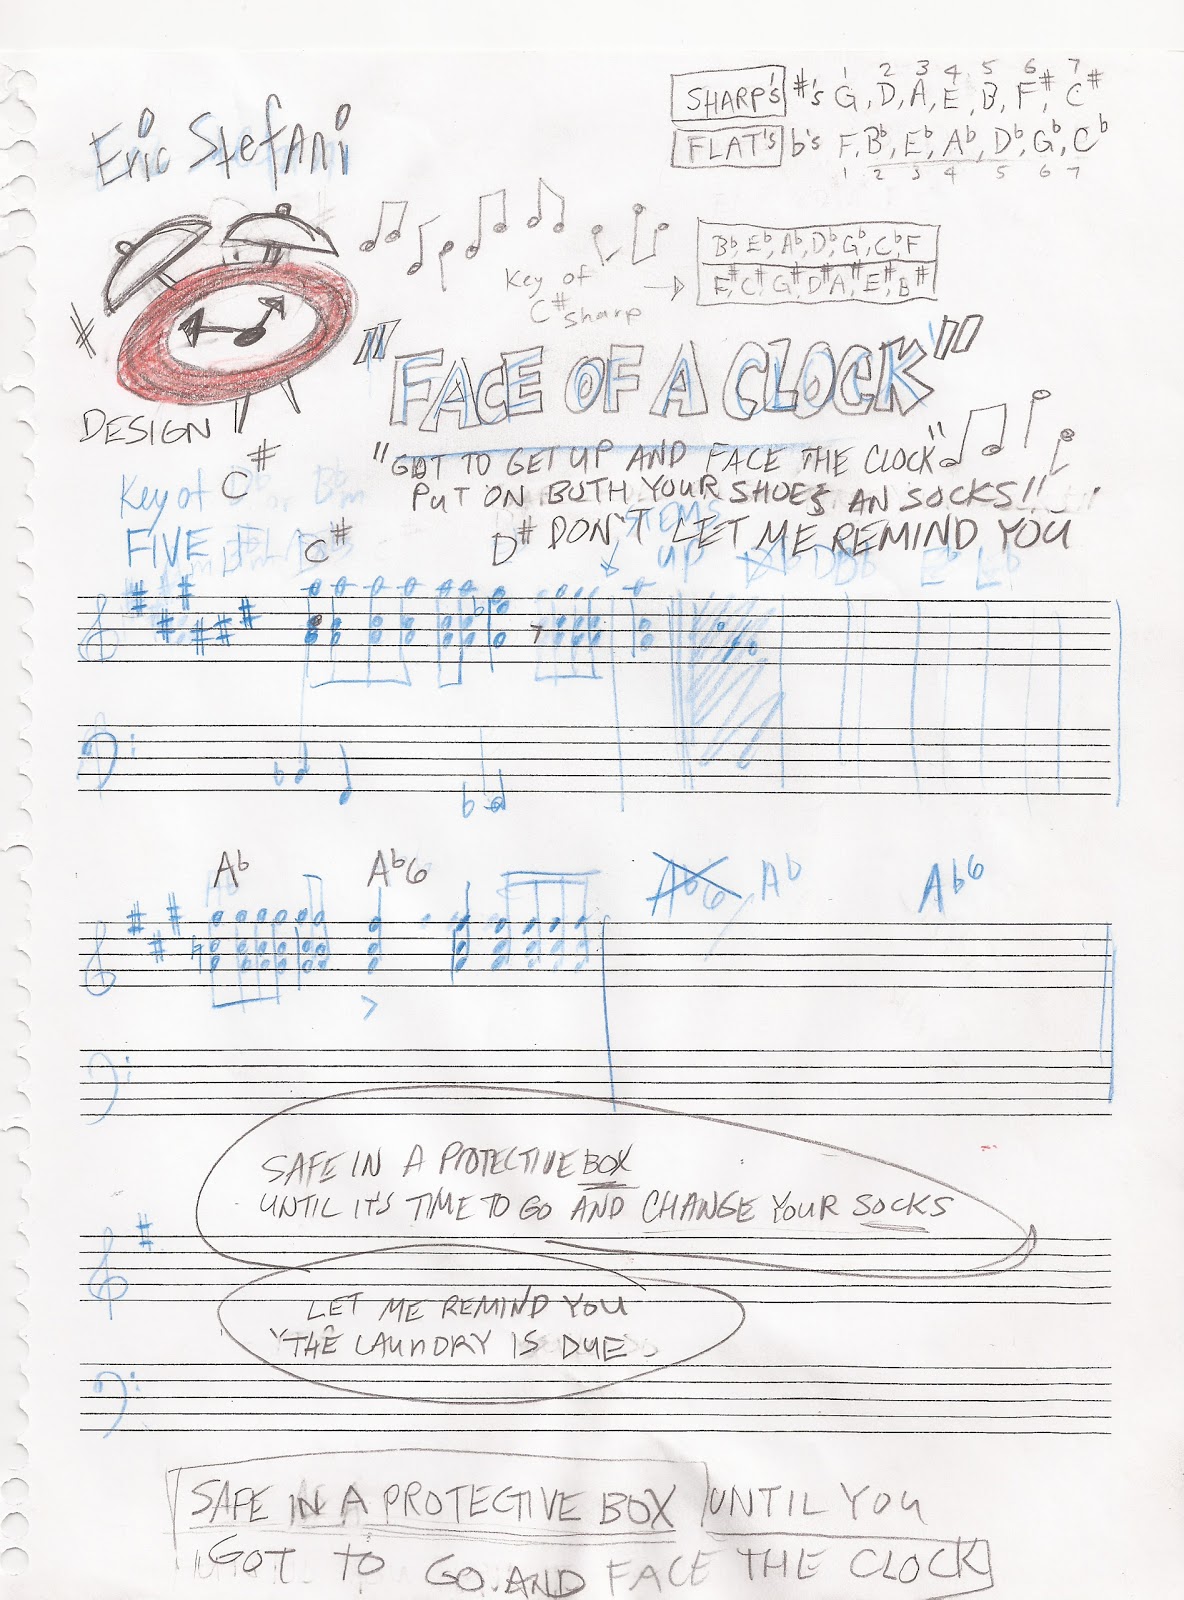 Eric Stefani
SHARP'S #'S G, D, A, E, B, F#, C#
1 2 3 4 5 6 7
FLAT'S b's F, Bb, Eb, Ab, Db, Gb, Cb
1 2 3 4 5 6 7
Key of C# sharp
Bb, Eb, Ab, Db, Gb, Cb, F
F#, C#, G#, D#, A#, E#, B#
"FACE OF A CLOCK"
DESIGN
"GOT TO GET UP AND FACE THE CLOCK"
PUT ON BOTH YOUR SHOES AN SOCKS!!
DON'T LET ME REMIND YOU
Key of C#
FIVE
C# D#
STEMS
UP
Ab Ab6 Ab6 Ab Ab6
SAFE IN A PROTECTIVE BOX
UNTIL IT'S TIME TO GO AND CHANGE YOUR SOCKS
LET ME REMIND YOU
"THE LAUNDRY IS DUE
SAFE IN A PROTECTIVE BOX UNTIL YOU
GOT TO GO AND FACE THE CLOCK